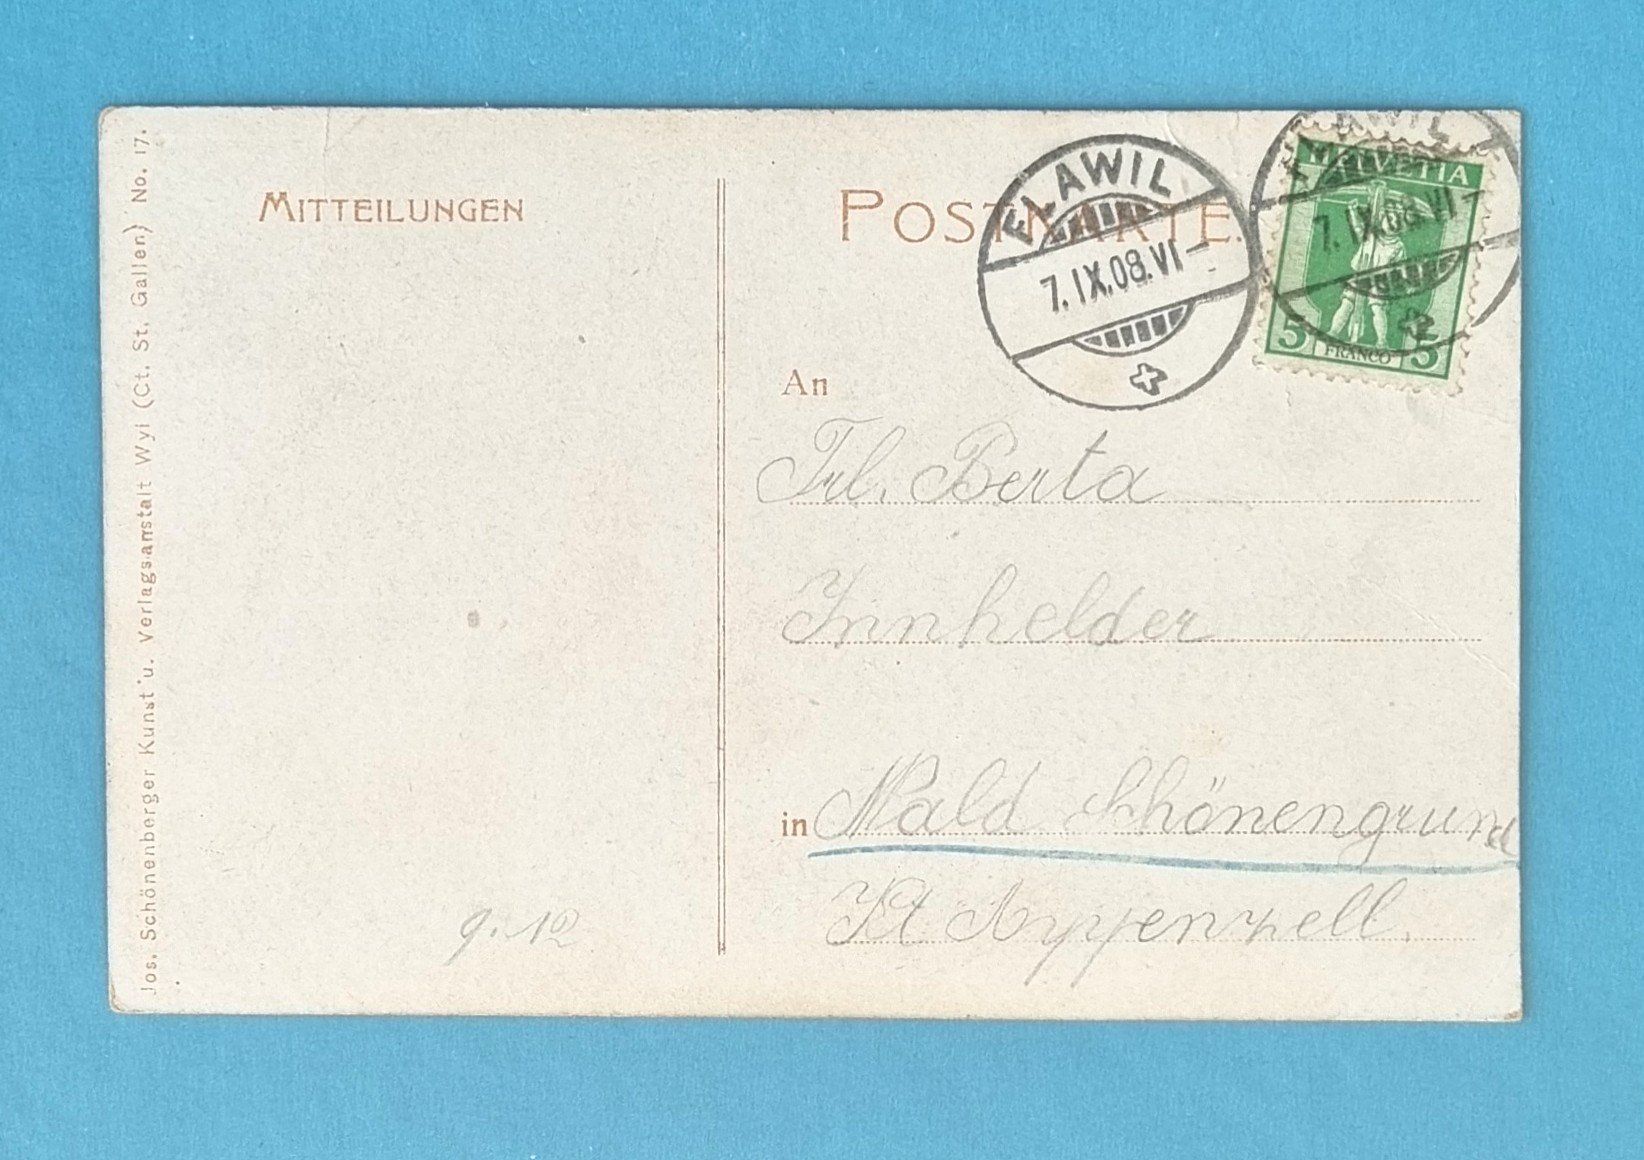 Jos. Schönenberger Kunst u. Verlagsanstalt Wyl (Ct. St. Gallen) No. 17.
MITTEILUNGEN
POSTKARTE.
FLAWIL
7.IX.08.VI-
WIL
7.IX.08.VI-
HELVETIA
5 FRANCO 5
An
Frl. Berta
Innhelder
in Wald Schönengrund
Kt Appenzell.
9.12